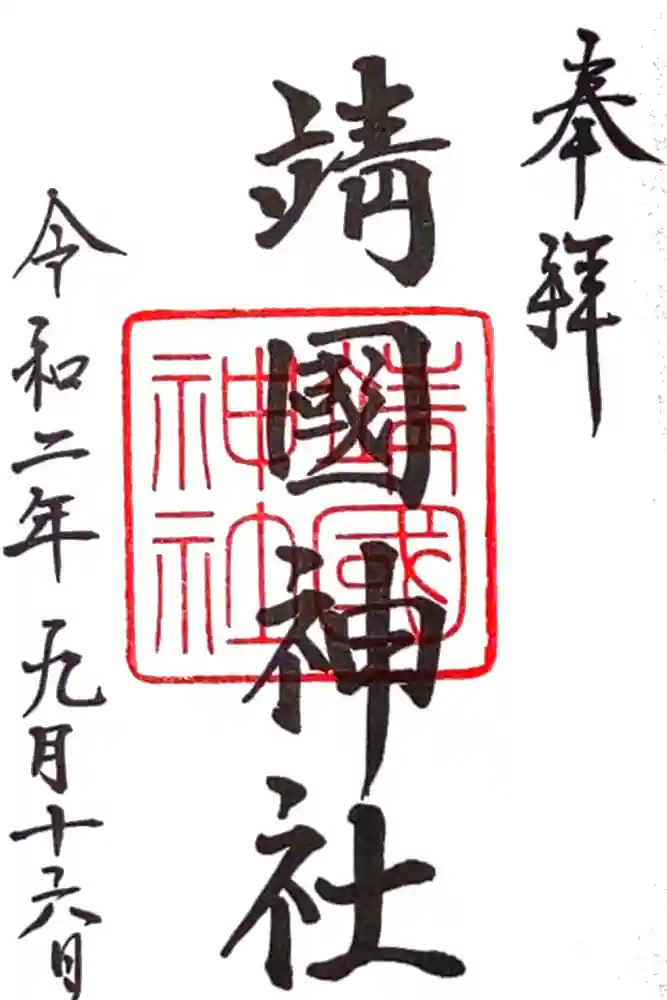 奉拝
靖國神社
靖國神社
令和二年九月十六日